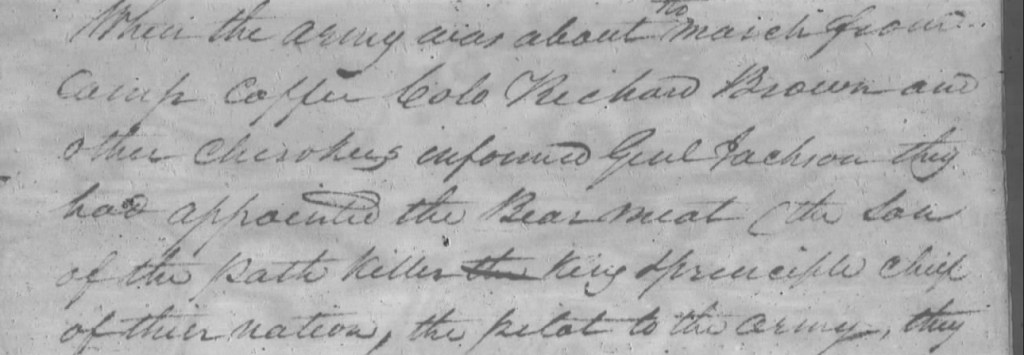 When the army was about to march from
Camp Coffee Colo Richard Brown and
other Cherokees informed Genl Jackson they
had appointed the Bear meat (the Son
of the Path Killer the King & principle chief
of thier nation, the pilot to the army, they